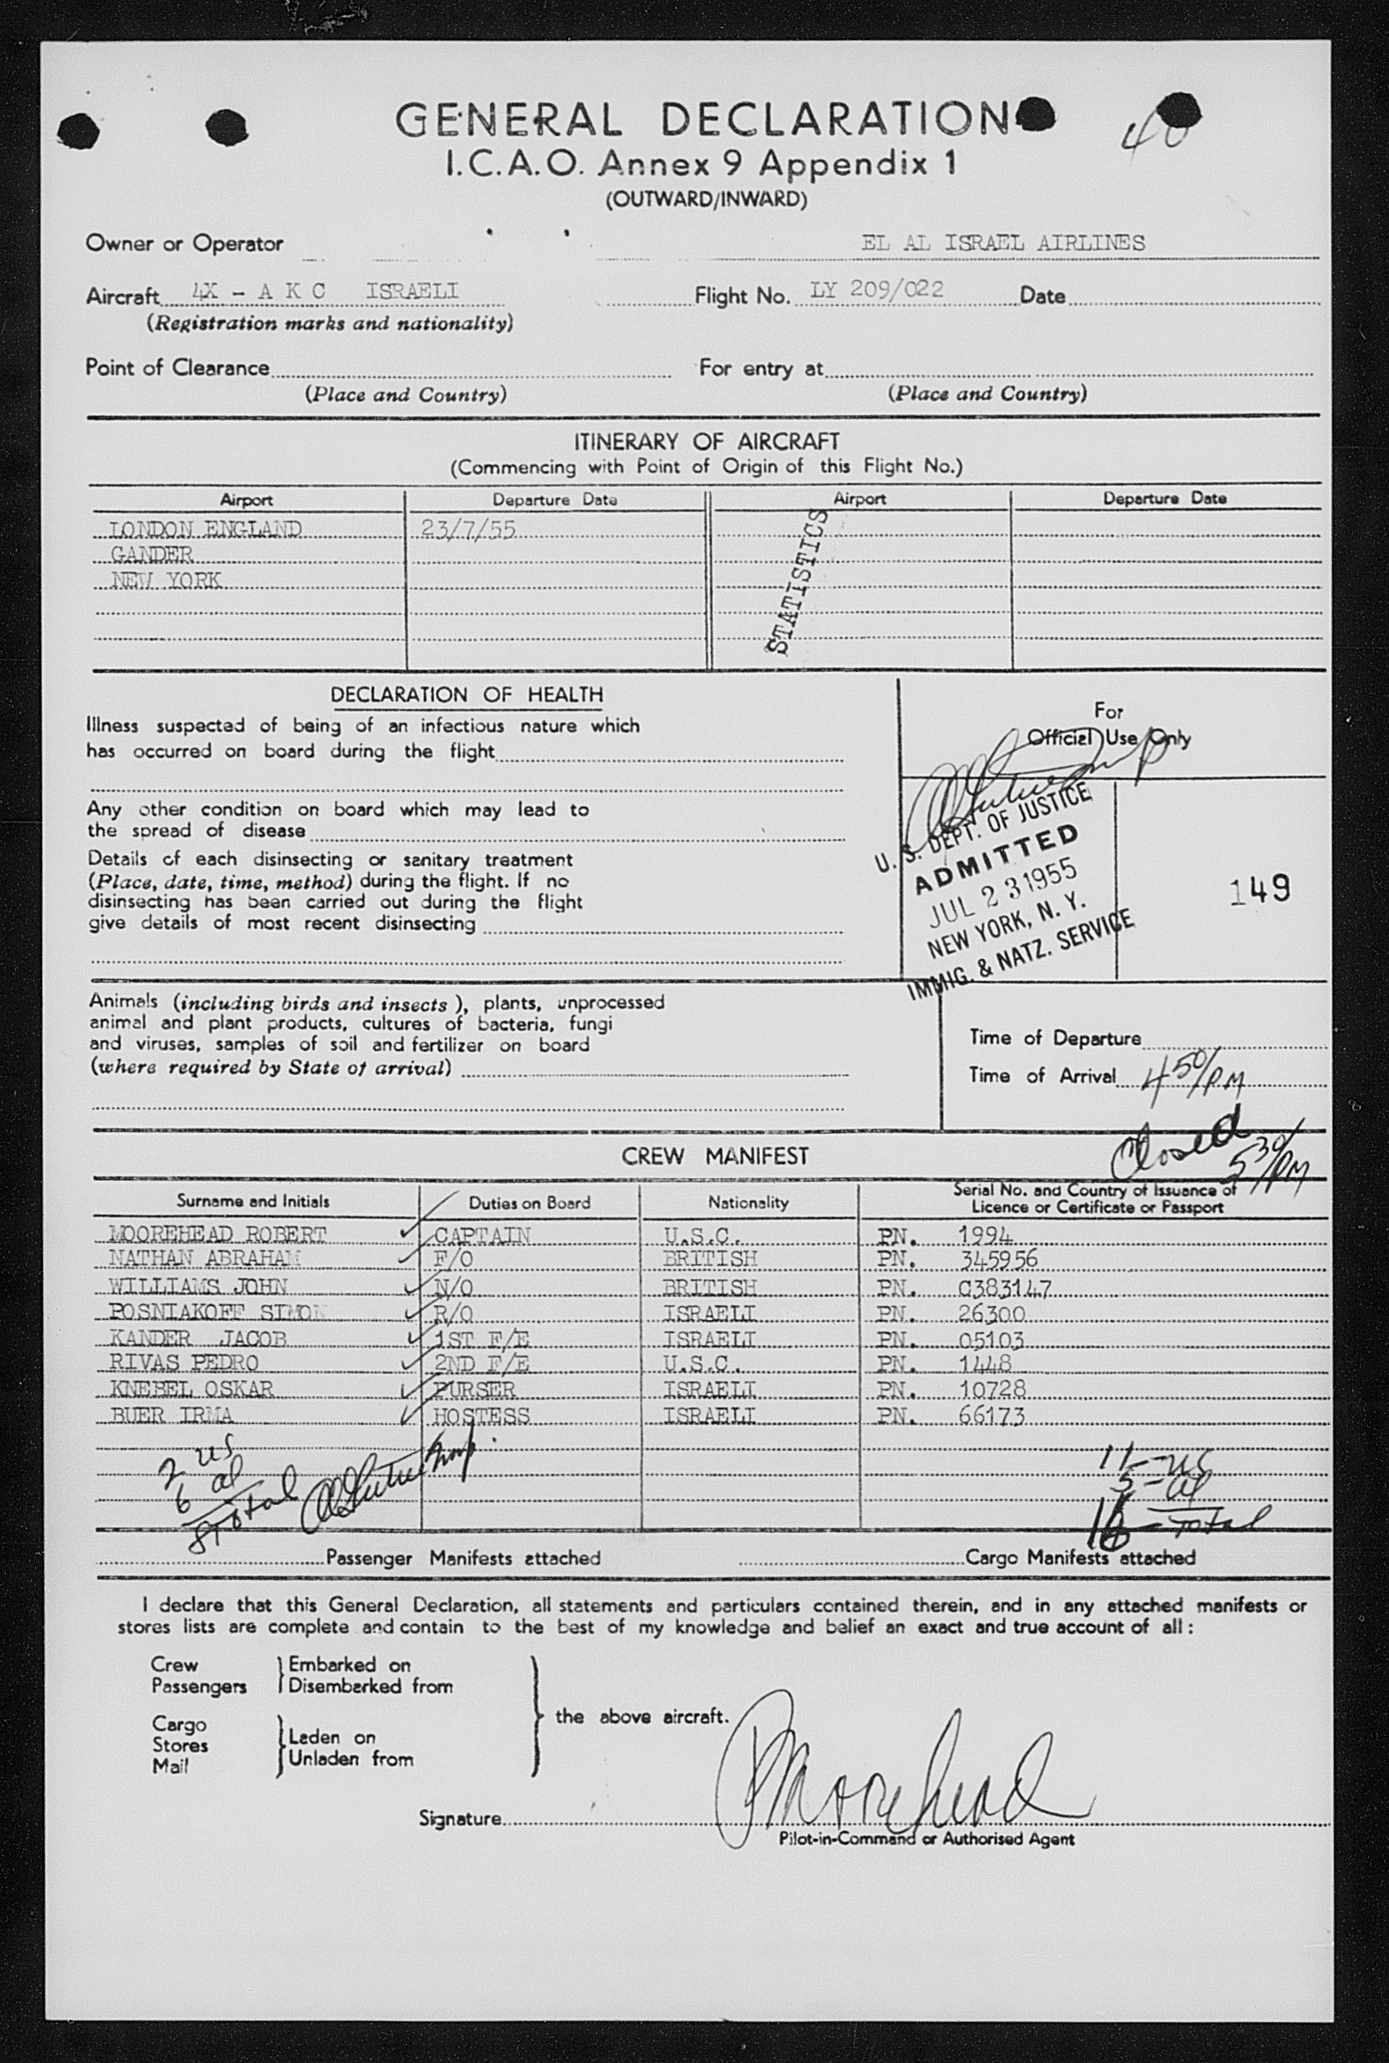 GENERAL DECLARATION
40
I.C.A.O. Annex 9 Appendix 1
(OUTWARD/INWARD)
Owner or Operator EL AL ISRAEL AIRLINES
Aircraft 4X - A K C ISRAELI Flight No. LY 209/022 Date
(Registration marks and nationality)
Point of Clearance For entry at
(Place and Country) (Place and Country)
ITINERARY OF AIRCRAFT
(Commencing with Point of Origin of this Flight No.)
Airport Departure Date Airport Departure Date
LONDON ENGLAND 23/7/55
GANDER
NEW YORK
STATISTICS
DECLARATION OF HEALTH
Illness suspected of being of an infectious nature which
has occurred on board during the flight
Any other condition on board which may lead to
the spread of disease
Details of each disinsecting or sanitary treatment
(Place, date, time, method) during the flight. If no
disinsecting has been carried out during the flight
give details of most recent disinsecting
For
Official Use Only
U. S. DEPT. OF JUSTICE
ADMITTED
JUL 23 1955
NEW YORK, N. Y.
IMMIG. & NATZ. SERVICE
149
Animals (including birds and insects ), plants, unprocessed
animal and plant products, cultures of bacteria, fungi
and viruses, samples of soil and fertilizer on board
(where required by State of arrival)
Time of Departure
Time of Arrival 4 50/PM
Closed 5 30/PM
CREW MANIFEST
Surname and Initials Duties on Board Nationality Serial No. and Country of Issuance of
Licence or Certificate or Passport
MOOREHEAD ROBERT CAPTAIN U.S.C. PN. 1994
NATHAN ABRAHAM F/O BRITISH PN. 345956
WILLIAMS JOHN N/O BRITISH PN. C383147
POSNIAKOFF SIMON R/O ISRAELI PN. 26300
KANDER JACOB 1ST F/E ISRAELI PN. 05103
RIVAS PEDRO 2ND F/E U.S.C. PN. 1448
KNEBEL OSKAR PURSER ISRAELI PN. 10728
BUER IRMA HOSTESS ISRAELI PN. 66173
2 us
6 al
8 Total
11 - us
5 - al
16 - Total
Passenger Manifests attached Cargo Manifests attached
I declare that this General Declaration, all statements and particulars contained therein, and in any attached manifests or
stores lists are complete and contain to the best of my knowledge and belief an exact and true account of all :
Crew Embarked on
Passengers Disembarked from
the above aircraft.
Cargo
Stores Laden on
Mail Unladen from
Signature RMoorehead
Pilot-in-Command or Authorised Agent